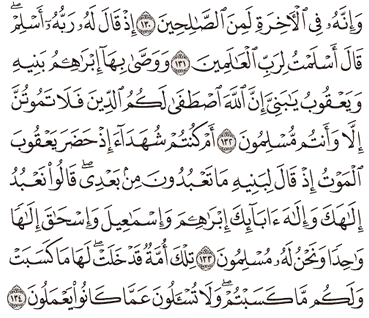 وَإِنَّهُۥ فِى ٱلْـَٔاخِرَةِ لَمِنَ ٱلصَّـٰلِحِينَ ١٣٠ إِذْ قَالَ لَهُۥ رَبُّهُۥٓ أَسْلِمْ ۖ
قَالَ أَسْلَمْتُ لِرَبِّ ٱلْعَـٰلَمِينَ ١٣١ وَوَصَّىٰ بِهَآ إِبْرَٰهِـۧمُ بَنِيهِ
وَيَعْقُوبُ يَـٰبَنِىَّ إِنَّ ٱللَّهَ ٱصْطَفَىٰ لَكُمُ ٱلدِّينَ فَلَا تَمُوتُنَّ
إِلَّا وَأَنتُم مُّسْلِمُونَ ١٣٢ أَمْ كُنتُمْ شُهَدَآءَ إِذْ حَضَرَ يَعْقُوبَ
ٱلْمَوْتُ إِذْ قَالَ لِبَنِيهِ مَا تَعْبُدُونَ مِنۢ بَعْدِى قَالُوا۟ نَعْبُدُ
إِلَـٰهَكَ وَإِلَـٰهَ ءَابَآئِكَ إِبْرَٰهِـۧمَ وَإِسْمَـٰعِيلَ وَإِسْحَـٰقَ إِلَـٰهًا
وَٰحِدًا وَنَحْنُ لَهُۥ مُسْلِمُونَ ١٣٣ تِلْكَ أُمَّةٌ قَدْ خَلَتْ ۖ لَهَا مَا كَسَبَتْ
وَلَكُم مَّا كَسَبْتُمْ ۖ وَلَا تُسْـَٔلُونَ عَمَّا كَانُوا۟ يَعْمَلُونَ ١٣٤